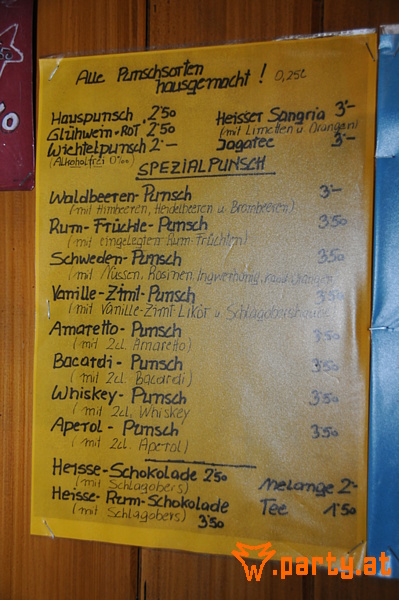 Alle Punschsorten
hausgemacht! 0,25l
Hauspunsch 2'50
Glühwein-Rot 2'50
Wichtelpunsch 2'-
(Alkoholfrei 0‰)
Heisser Sangria 3'-
(mit Limetten u. Orangen)
Jagatee 3'-
SPEZIALPUNSCH
Waldbeeren-Punsch 3'-
(mit Himbeeren, Heidelbeeren u. Brombeeren)
Rum-Früchte-Punsch 3'50
(mit eingelegten Rum-Früchten)
Schweden-Punsch 3'50
(mit Nüssen, Rosinen, Ingwerhonig,
Vanille-Zimt-Punsch 3'50
(mit Vanille-Zimt-Likör u. Schlagobershaube)
Amaretto-Punsch 3'50
(mit 2cl. Amaretto)
Bacardi-Punsch 3'50
(mit 2cl. Bacardi)
Whiskey-Punsch 3'50
(mit 2cl. Whiskey
Aperol-Punsch 3'50
(mit 2cl. Aperol)
Heisse-Schokolade 2'50
(mit Schlagobers)
Heisse-Rum-Schokolade
(mit Schlagobers) 3'50
Melange 2'-
Tee 1'50
.party.at